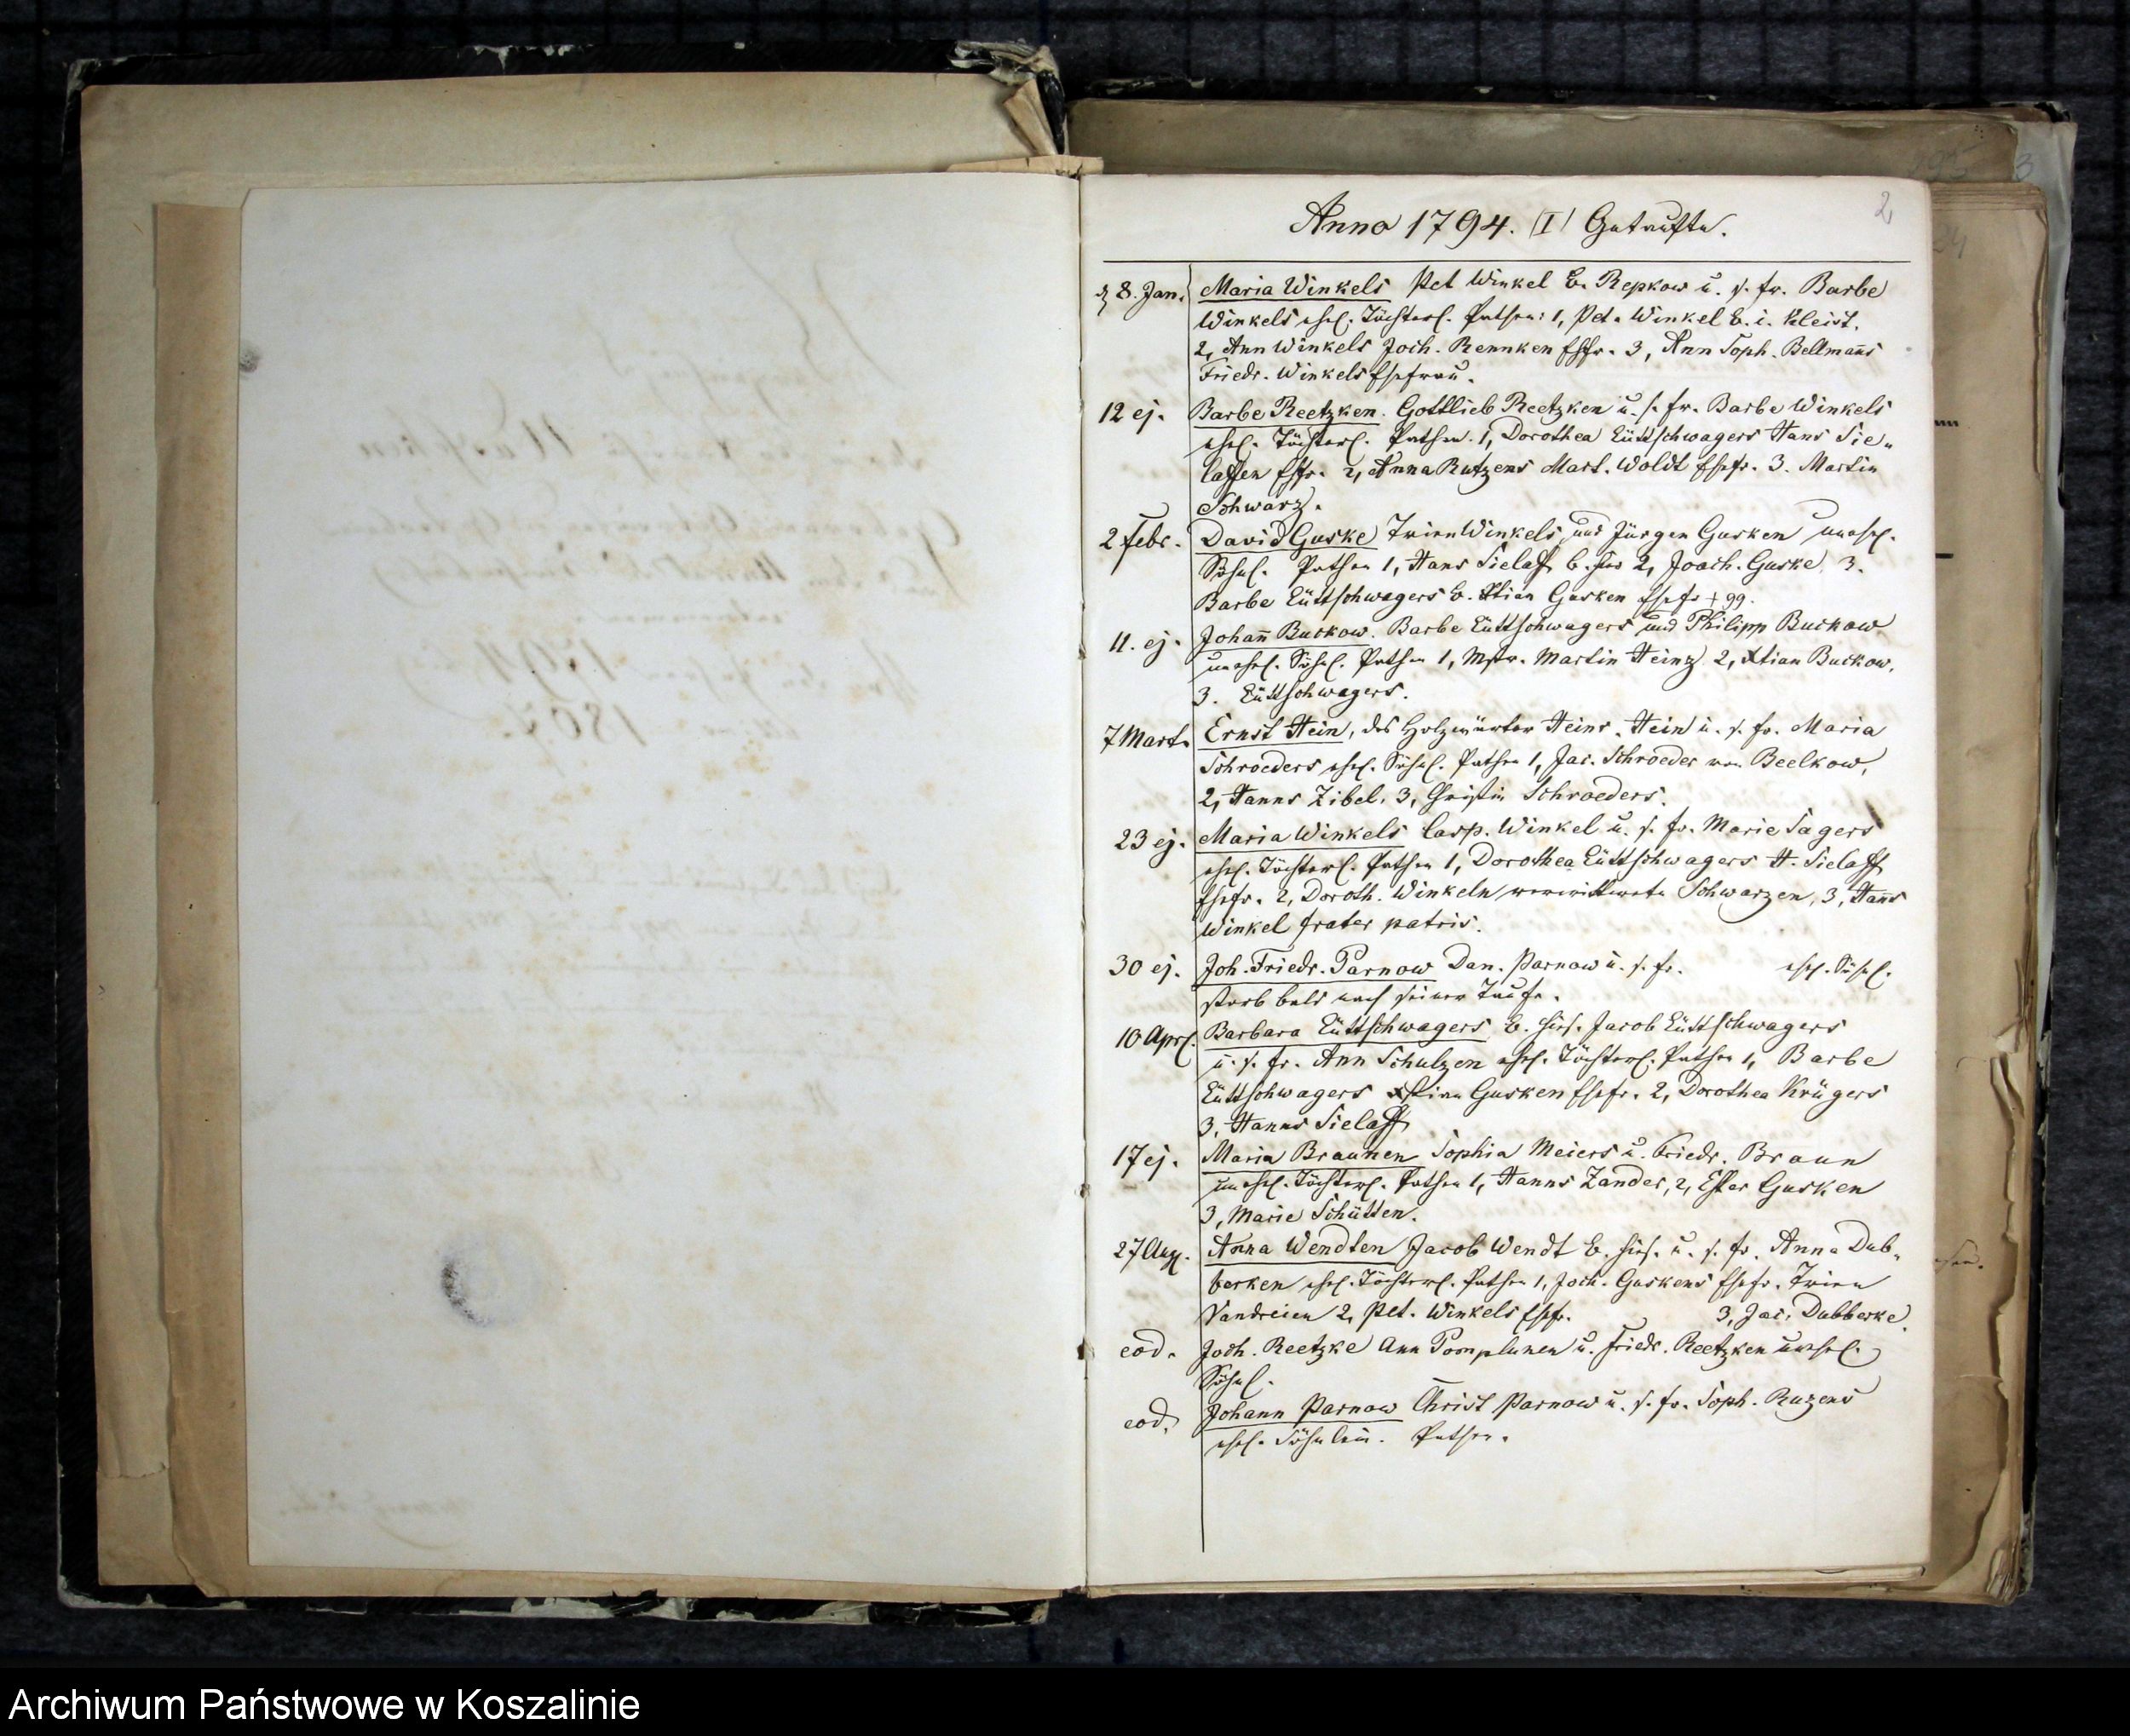 2
Anno 1794. (I) Getaufte.
d 8. Jan. Maria Winkels Pet Winkel B. Repkow u. s. fr. Barbe
Winkels ehel. Töchterl. Pathen: 1, Pet. Winkel B. i. Kleist.
2, Ann Winkels Joch. Rennken Ehfr. 3, Ann Soph. Bellmañs
Friedr. Winkels Ehefrau.
12 ej. Barbe Reetzken. Gottlieb Reetzken u. s. fr. Barbe Winkels
ehel. Töchterl. Pathen. 1, Dorothea Lüttschwagers Hans Sie„
laffen Ehfr. 2, Anna Rutzens Mart. Woldt Ehefr. 3. Martin
Schwarz.
2 Febr. David Guske Trien Winkels und Jürgen Gusken unehel.
Söhnl. Pathen 1, Hans Sielaff B. hies 2, Joach. Guske. 3.
Barbe Lüttschwagers B. Xtian Gusken Ehefr + 99.
11. ej. Johañ Buckow. Barbe Lüttschwagers und Philipp Buckow
unehel. Söhnl. Pathen 1, Mstr. Martin Heinz 2, Xtian Buckow,
3. Lüttschwagers.
7 Mart. Ernst Hein, des Holzwärter Heinr. Hein u. s. fr. Maria
Schroeders ehel. Söhnl. Pathen 1, Jac. Schroeder von Beelkow,
2, Hanns Zibel. 3, Christin Schroeders.
23 ej. Maria Winkels Casp. Winkel u. s. fr. Marie Sagers
ehel. Töchterl. Pathen 1, Dorothea Lüttschwagers H. Sielaff
Ehefr. 2, Doroth. Winkeln verwittwete Schwarzen, 3, Hans
Winkel frater patris.
30 ej. Joh. Friedr. Parnow Dan. Parnow u. s. fr. ehel. Söhnl.
starb bald nach seiner Taufe.
10 Aprl. Barbara Lüttschwagers B. hies. Jacob Lüttschwagers
u. s. fr. Ann Schulzen ehel. Töchterl. Pathen 1, Barbe
Lüttschwagers Xstian Gusken Ehefr. 2, Dorothea Krügers
3, Hanns Sielaff
17 ej. Maria Braunen Sophia Meiers u. Friedr. Braun
unehel. Töchterl. Pathen 1, Hanns Zander, 2, Ester Gusken
3, Marie Schütten.
27 Aug. Anna Wendten Jacob Wendt B. hies. u. s. fr. Anna Dub„
berken ehel. Töchterl. Pathen 1, Joch. Guskens Ehefr. Trien
Vandreien 2, Pet. Winkels Ehfr. 3, Jac. Dubberke.
eod. Joch. Reetzke Ann Pomplunen u. Friedr. Reetzken unehel.
Söhnl.
eod. Johann Parnow Christ Parnow u. s. fr. Soph. Ruzens
ehel. Söhnlein. Pathen.
Archiwum Państwowe w Koszalinie